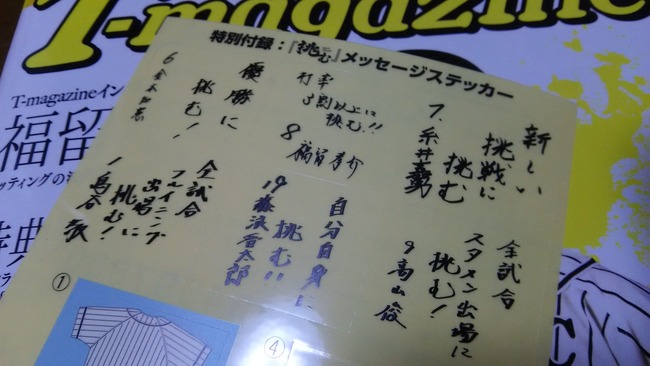 T-magazine
特別付録：『挑む』メッセージステッカー
T-magazineイン
福留
ッティングの
特典
新しい
挑戦に
挑む
7. 糸井嘉男
打率
3割以上に
挑む!!
8 福留孝介
優勝に
挑む!
6 金本知憲
全試合
スタメン出場に
挑む!
9 高山俊
自分自身に
挑む!!
19 藤浪晋太郎
全試合
フルイニング
出場に
挑む!
1 鳥谷敬
①
④